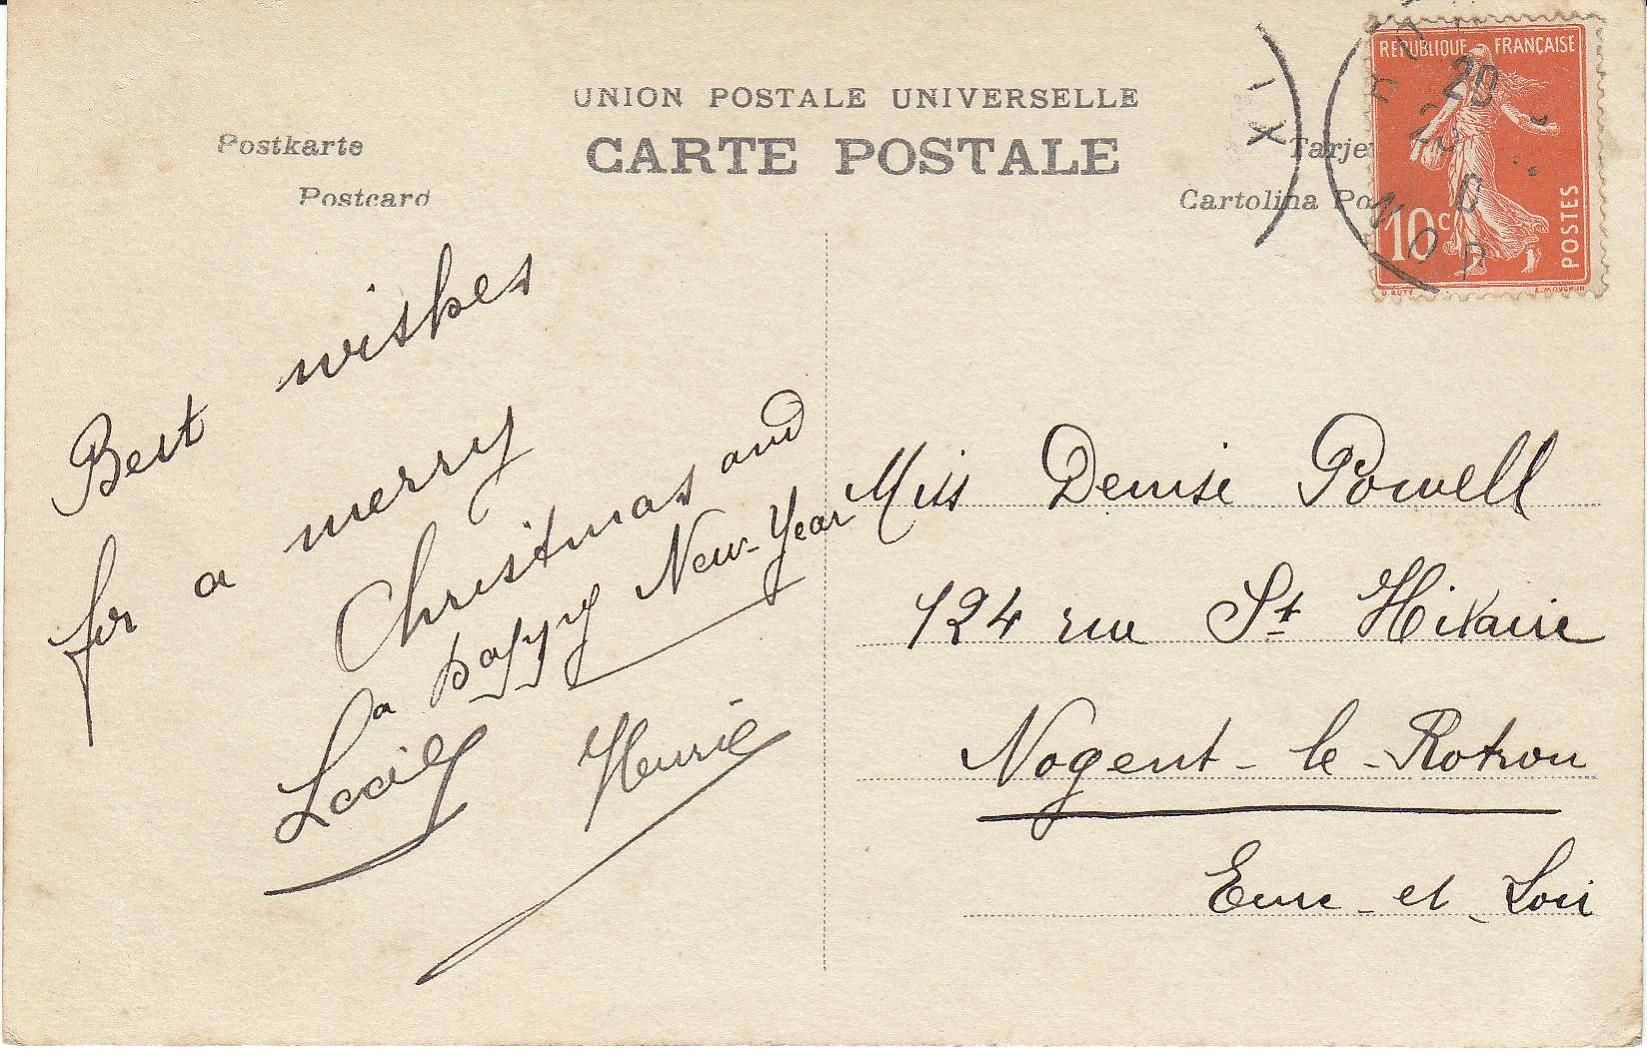 UNION POSTALE UNIVERSELLE
CARTE POSTALE
Postkarte
Postcard
Tarje
Cartolina Po
REPUBLIQUE FRANÇAISE
10c
POSTES
O. ROTY
E. MOUCHON
XI
20
Best wishes
for a merry
Christmas and
a happy New-Year
Miss Denise Powell
124 rue St Hilaire
Nogent-le-Rotrou
Eure-et-Loir